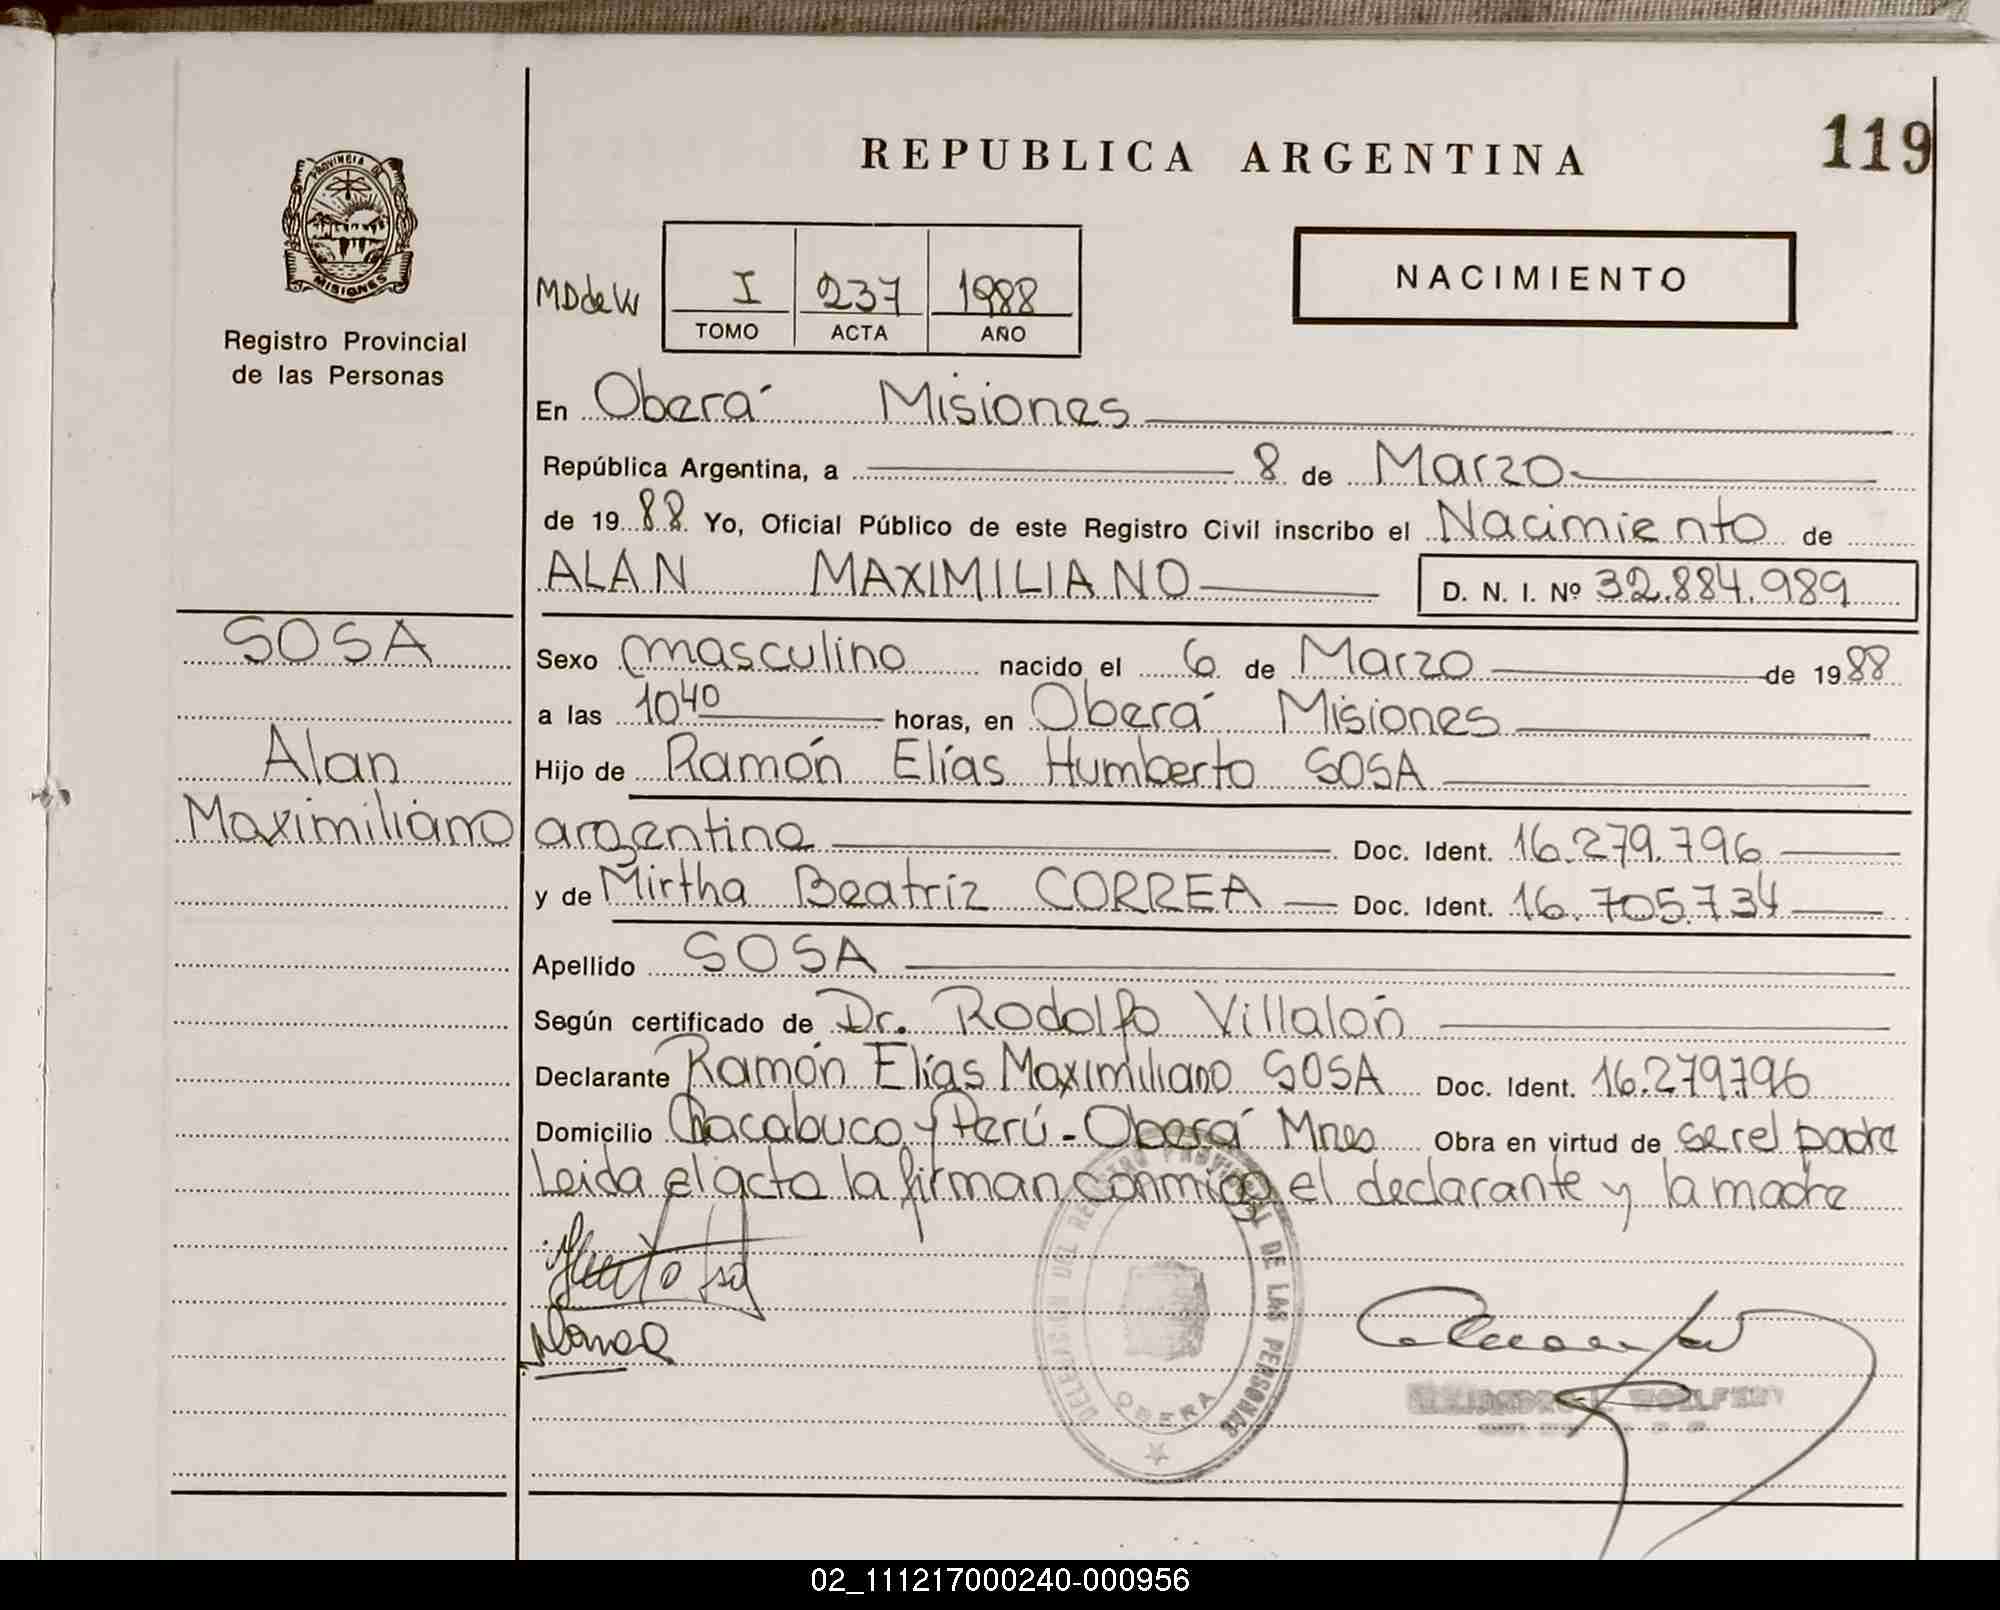 119
REPUBLICA ARGENTINA
PROVINCIA DE
MISIONES
Registro Provincial
de las Personas
NACIMIENTO
MDdeW
I 237 1988
TOMO ACTA AÑO
En Oberá Misiones
República Argentina, a 8 de Marzo
de 1988 Yo, Oficial Público de este Registro Civil inscribo el Nacimiento de
ALAN MAXIMILIANO D. N. I. Nº 32.884.989
SOSA
Alan
Maximiliano
Sexo masculino nacido el 6 de Marzo de 1988
a las 10⁴⁰ horas, en Oberá Misiones
Hijo de Ramón Elías Humberto SOSA
argentina Doc. Ident. 16.279.796
y de Mirtha Beatríz CORREA Doc. Ident. 16.705.734
Apellido SOSA
Según certificado de Dr. Rodolfo Villalón
Declarante Ramón Elías Maximiliano SOSA Doc. Ident. 16.279.796
Domicilio Chacabuco y Perú - Oberá Mnes Obra en virtud de ser el padre
Leida el acta la firman conmigo el declarante y la madre
DELEGACION DEL REGISTRO PROVINCIAL DE LAS PERSONAS
OBERA
02_111217000240-000956